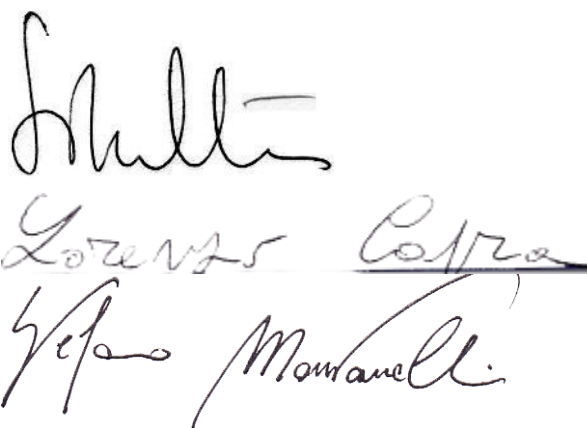 Lorenzo Capra
Stefano Montanelli